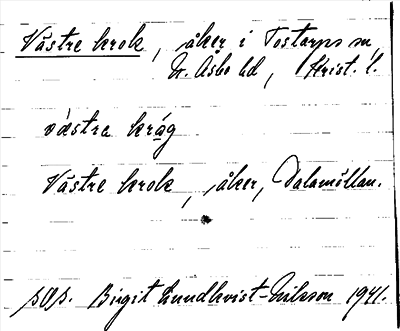 Västre krok, åker i Tostarps sn,
N. Åsbo hd, Krist. l.
västra kråg
Västre krok, åker, Dalamöllan.
sOs. Birgit Lundkvist-Nilsson 1941.